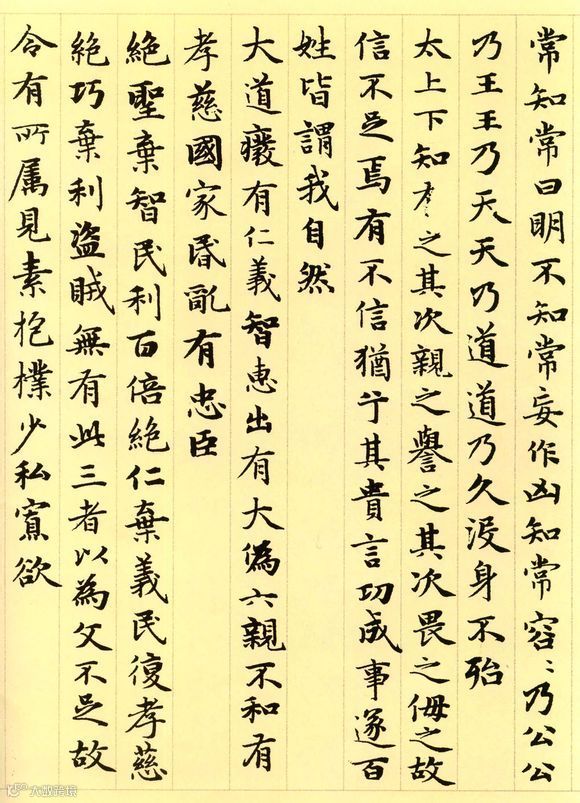 常知常曰明不知常妄作凶知常容〻乃公公
乃王王乃天天乃道道乃久没身不殆
太上下知有之其次親之譽之其次畏之侮之故
信不足焉有不信猶于其貴言功成事遂百
姓皆謂我自然
大道癈有仁義智惠出有大偽六親不和有
孝慈國家昏亂有忠臣
絕聖棄智民利百倍絕仁棄義民復孝慈
絕巧棄利盜賊無有此三者以為文不足故
令有所屬見素抱樸少私寡欲
大众跨境